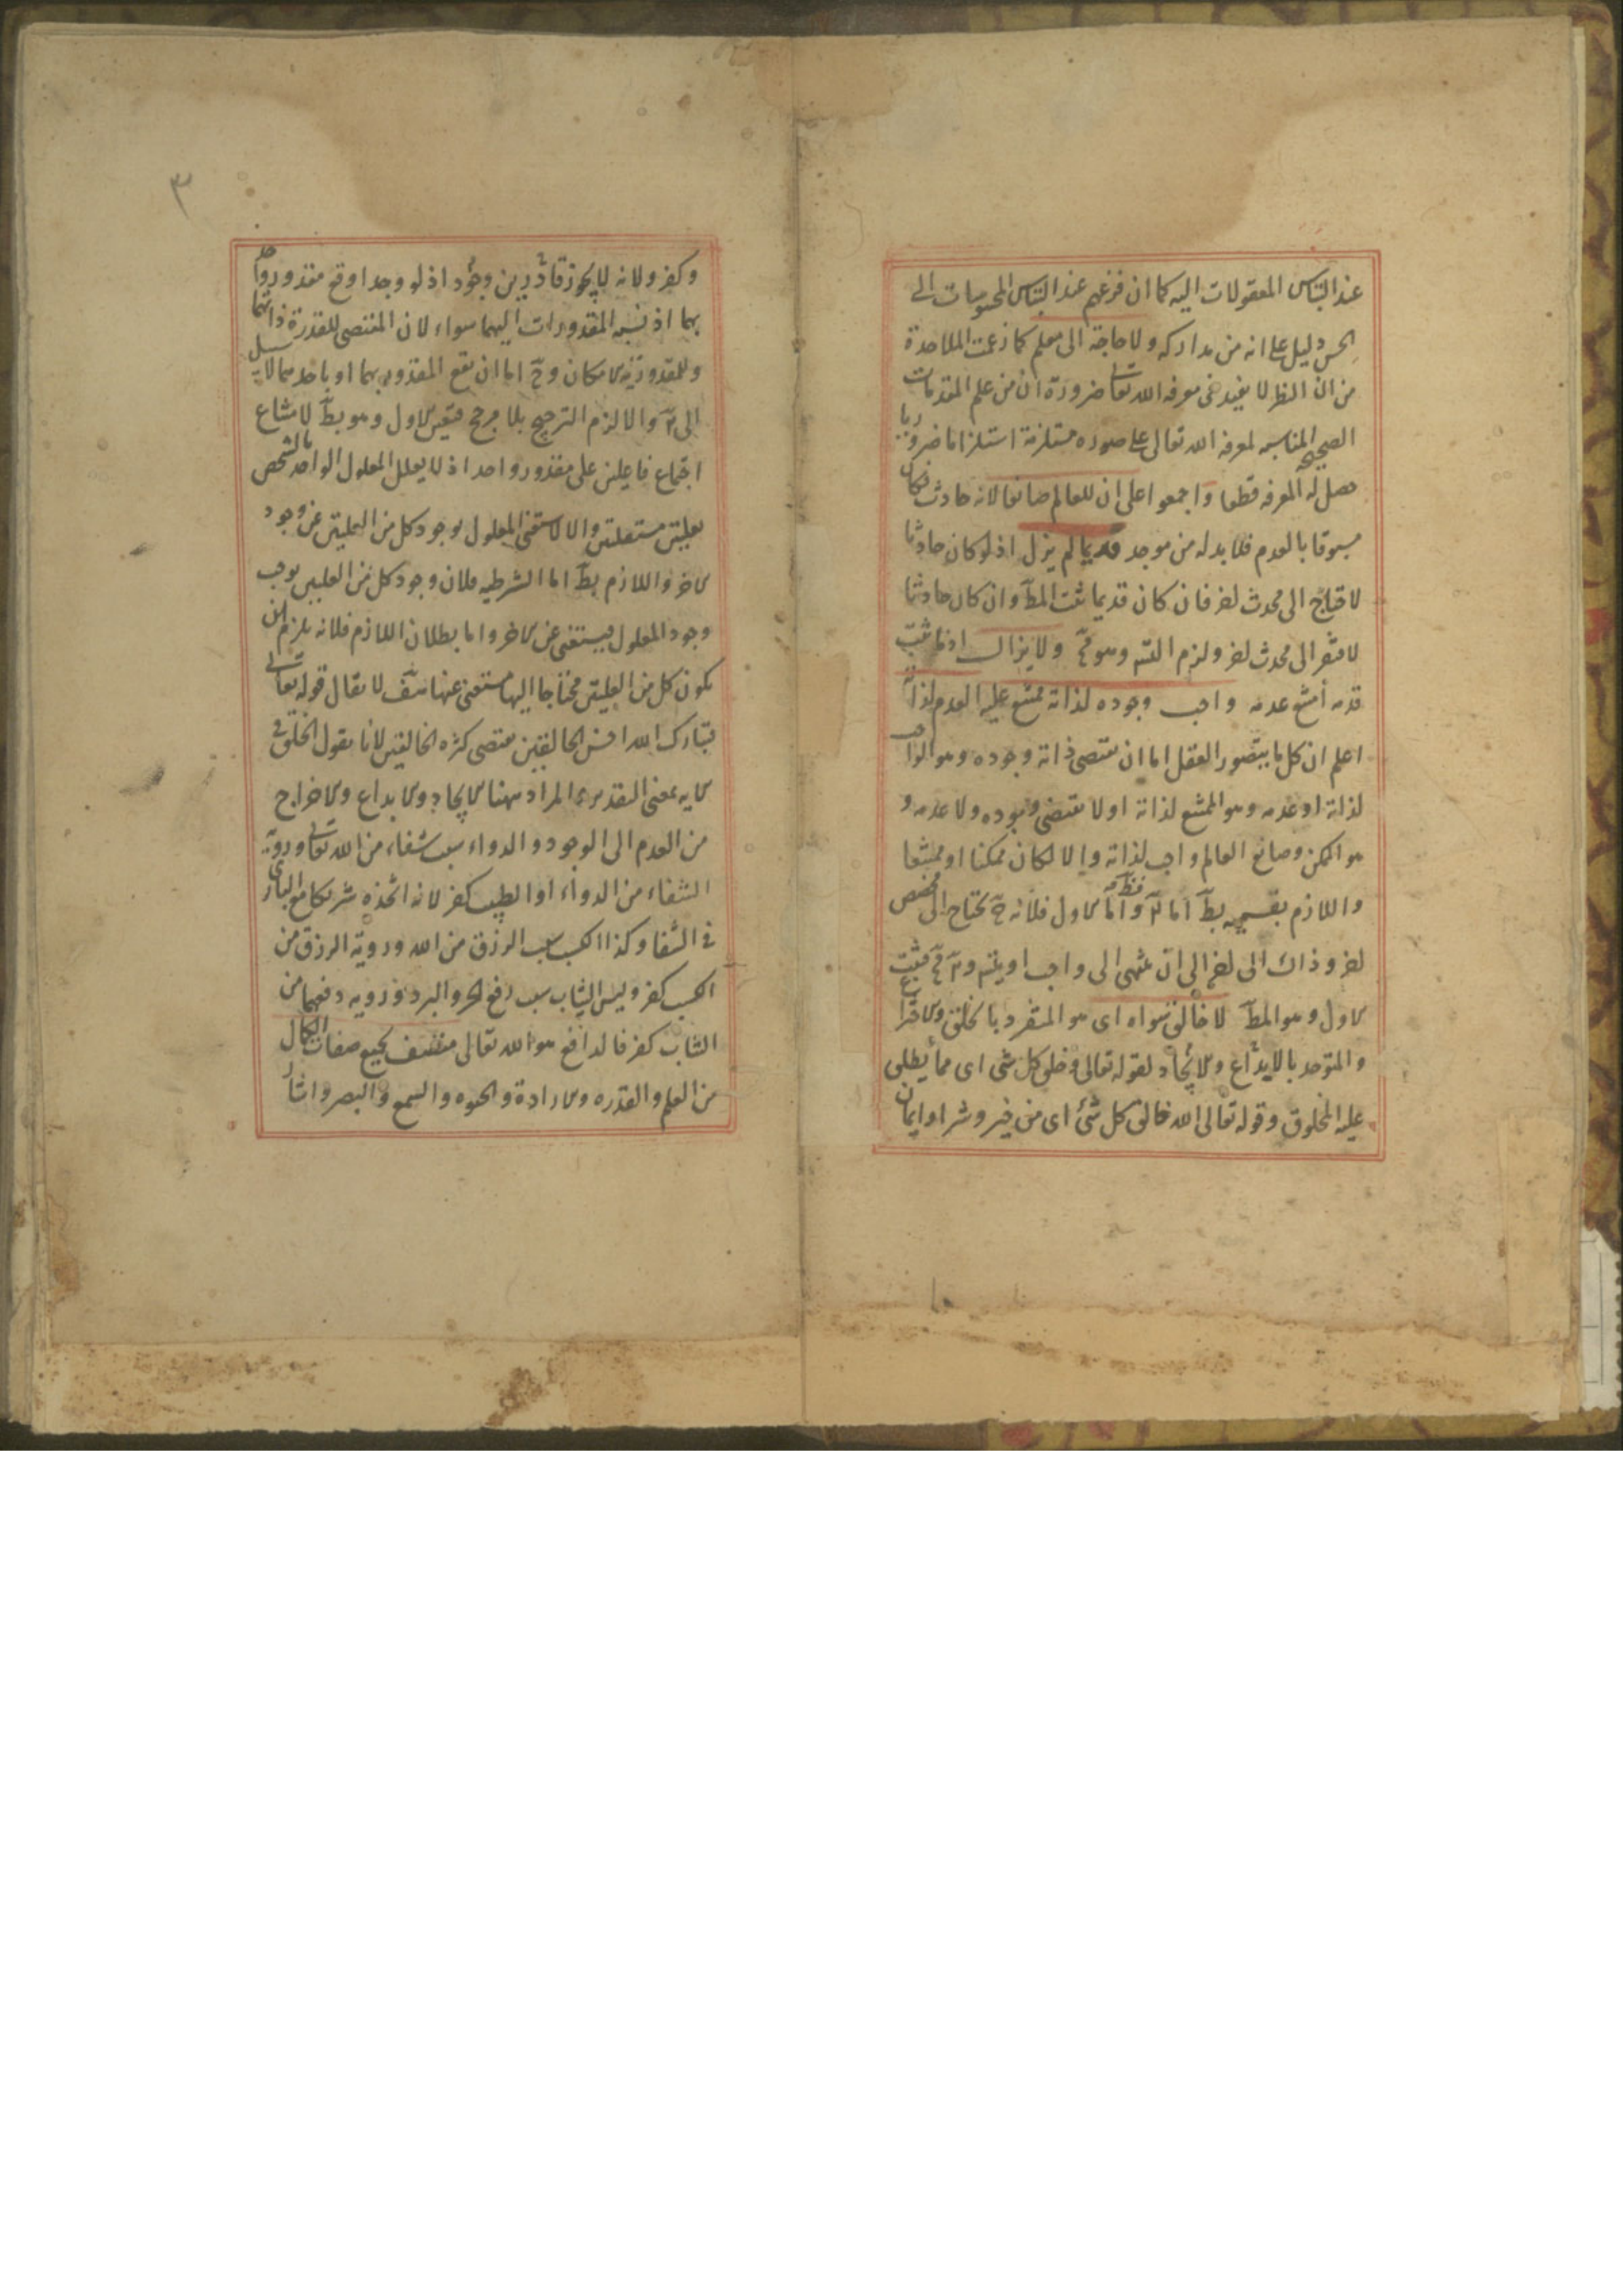 عند التباس المعقولات اليه كما ان فزعهم عند التباس المحسوسات الى
الحس دليل على انه من مداركه ولا حاجة الى معلم كما زعمت الملاحدة
من ان النظر لا يفيد فى معرفة الله تعا ضرورة ان من علم المقدمات
الصحيحة المناسبة لمعرفة الله تعالى على صوره مستلزمة استلزاما ضروريا
حصل له المعرفه قطعا واجمعوا على ان للعالم صانعا لانه حادث فكان
مسبوقا بالعدم فلا بد له من موجد قديما لم يزل اذ لو كان حادثا
لاحتاج الى محدث اخر فان كان قديما ثبت المط وان كان حادثا
لافتقر الى محدث اخر ولزم التس وهو مح ولا يزال اذ ما ثبت
قدمه امتنع عدمه واجب وجوده لذاته ممتنع عليه العدم لذاته
اعلم ان كل ما يتصور العقل اما ان يقتضى ذاته وجوده وهو الواجب
لذاته او عدمه وهو الممتنع لذاته او لا يقتضى وجوده ولا عدمه و
هو الممكن وصانع العالم واجب لذاته والا لكان ممكنا او ممتنعا
واللازم بقسميه بط اما فظ واما الاول فلانه ح يحتاج الى مخصص
اخر وذاك الى اخر الى ان ينتهى الى واجب او يتس مح فثبت
الاول وهو المط لا خالق سواه اى هو المتفرد بالخلق والاختراع
والمتوحد بالابداع والايجاد لقوله تعالى وخلق كل شى اى مما يطلق
عليه المخلوق وقوله تعالى الله خالق كل شئ اى من خير وشر او ايمان
٣
وكفر ولانه لا يجوز قادرين وجود اذ لو وجدا وقع مقدور واحد
بهما اذ نسبة المقدورات اليهما سواء لان المقتضى للقدرة ذاتهما
وللمقدورية الامكان وح اما ان يقع المقدور بهما او باحدهما لا سبيل
الى والا لزم الترجيح بلا مرجح فتعين الاول وهو بط لامتناع
اجتماع فاعلين على مقدور واحد اذ لا يعلل المعلول الواحد بالشخص
بعلتين مستقلتين والا لاستغنى المعلول بوجود كل من العلتين عن وجود
الاخر واللازم بط اما الشرطيه فلان وجود كل من العلتين يوجب
وجود المعلول فيستغنى عن الاخر واما بطلان اللازم فلانه يلزم ان
يكون كل من العلتين محتاجا اليها مستغنى عنها لا يقال قوله تعالى
فتبارك الله احسن الخالقين يقتضى كثرة الخالقين لانا نقول الخلق فى
الايه بمعنى التقدير المراد ههنا الايجاد والابداع والاخراج
من العدم الى الوجود والدواء سبب شفاء من الله تعالى ورؤية
الشفاء من الدواء او الطبيب كفر لانه اتخذه شريكا مع البارى
فى الشفا وكذا الكسب سبب الرزق من الله ورؤية الرزق من
الكسب كفر ولبس الثياب سبب دفع الحر والبرد ورؤيه دفعهما من
الثياب كفر فالدافع هو الله تعالى متصف بجميع صفات الكمال
من العلم والقدره والارادة والحيوه والسمع والبصر